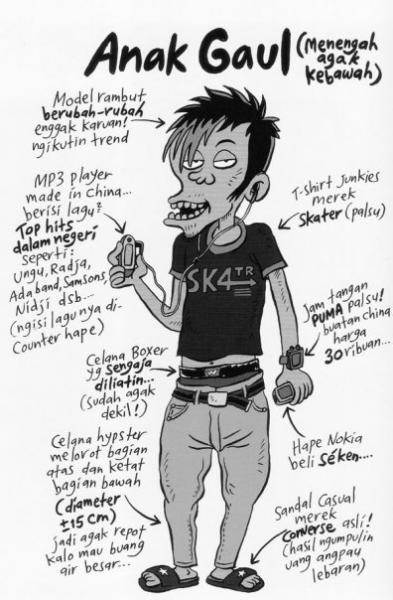 Anak Gaul (Menengah
agak
kebawah)
Model rambut
berubah-rubah
enggak karuan!
ngikutin trend
MP3 player
made in china...
berisi lagu²
Top hits
dalam negeri
seperti:
ungu, Radja,
Adaband, Samsons,
Nidji dsb...
(ngisi lagunya di-
Counter hape)
T-shirt Junkies
merek
Skater (palsu)
SK4TR
Jam tangan
PUMA palsu!
buatan china
harga
30 ribuan...
Celana Boxer
yg sengaja
diliatin...
(sudah agak
dekil!)
Hape Nokia
beli séken....
Celana hypster
melorot bagian
atas dan ketat
bagian bawah
(diameter
±15 cm)
jadi agak repot
kalo mau buang
air besar...
Sandal Casual
merek
Converse asli!
(hasil ngumpulin
uang angpau
lebaran)